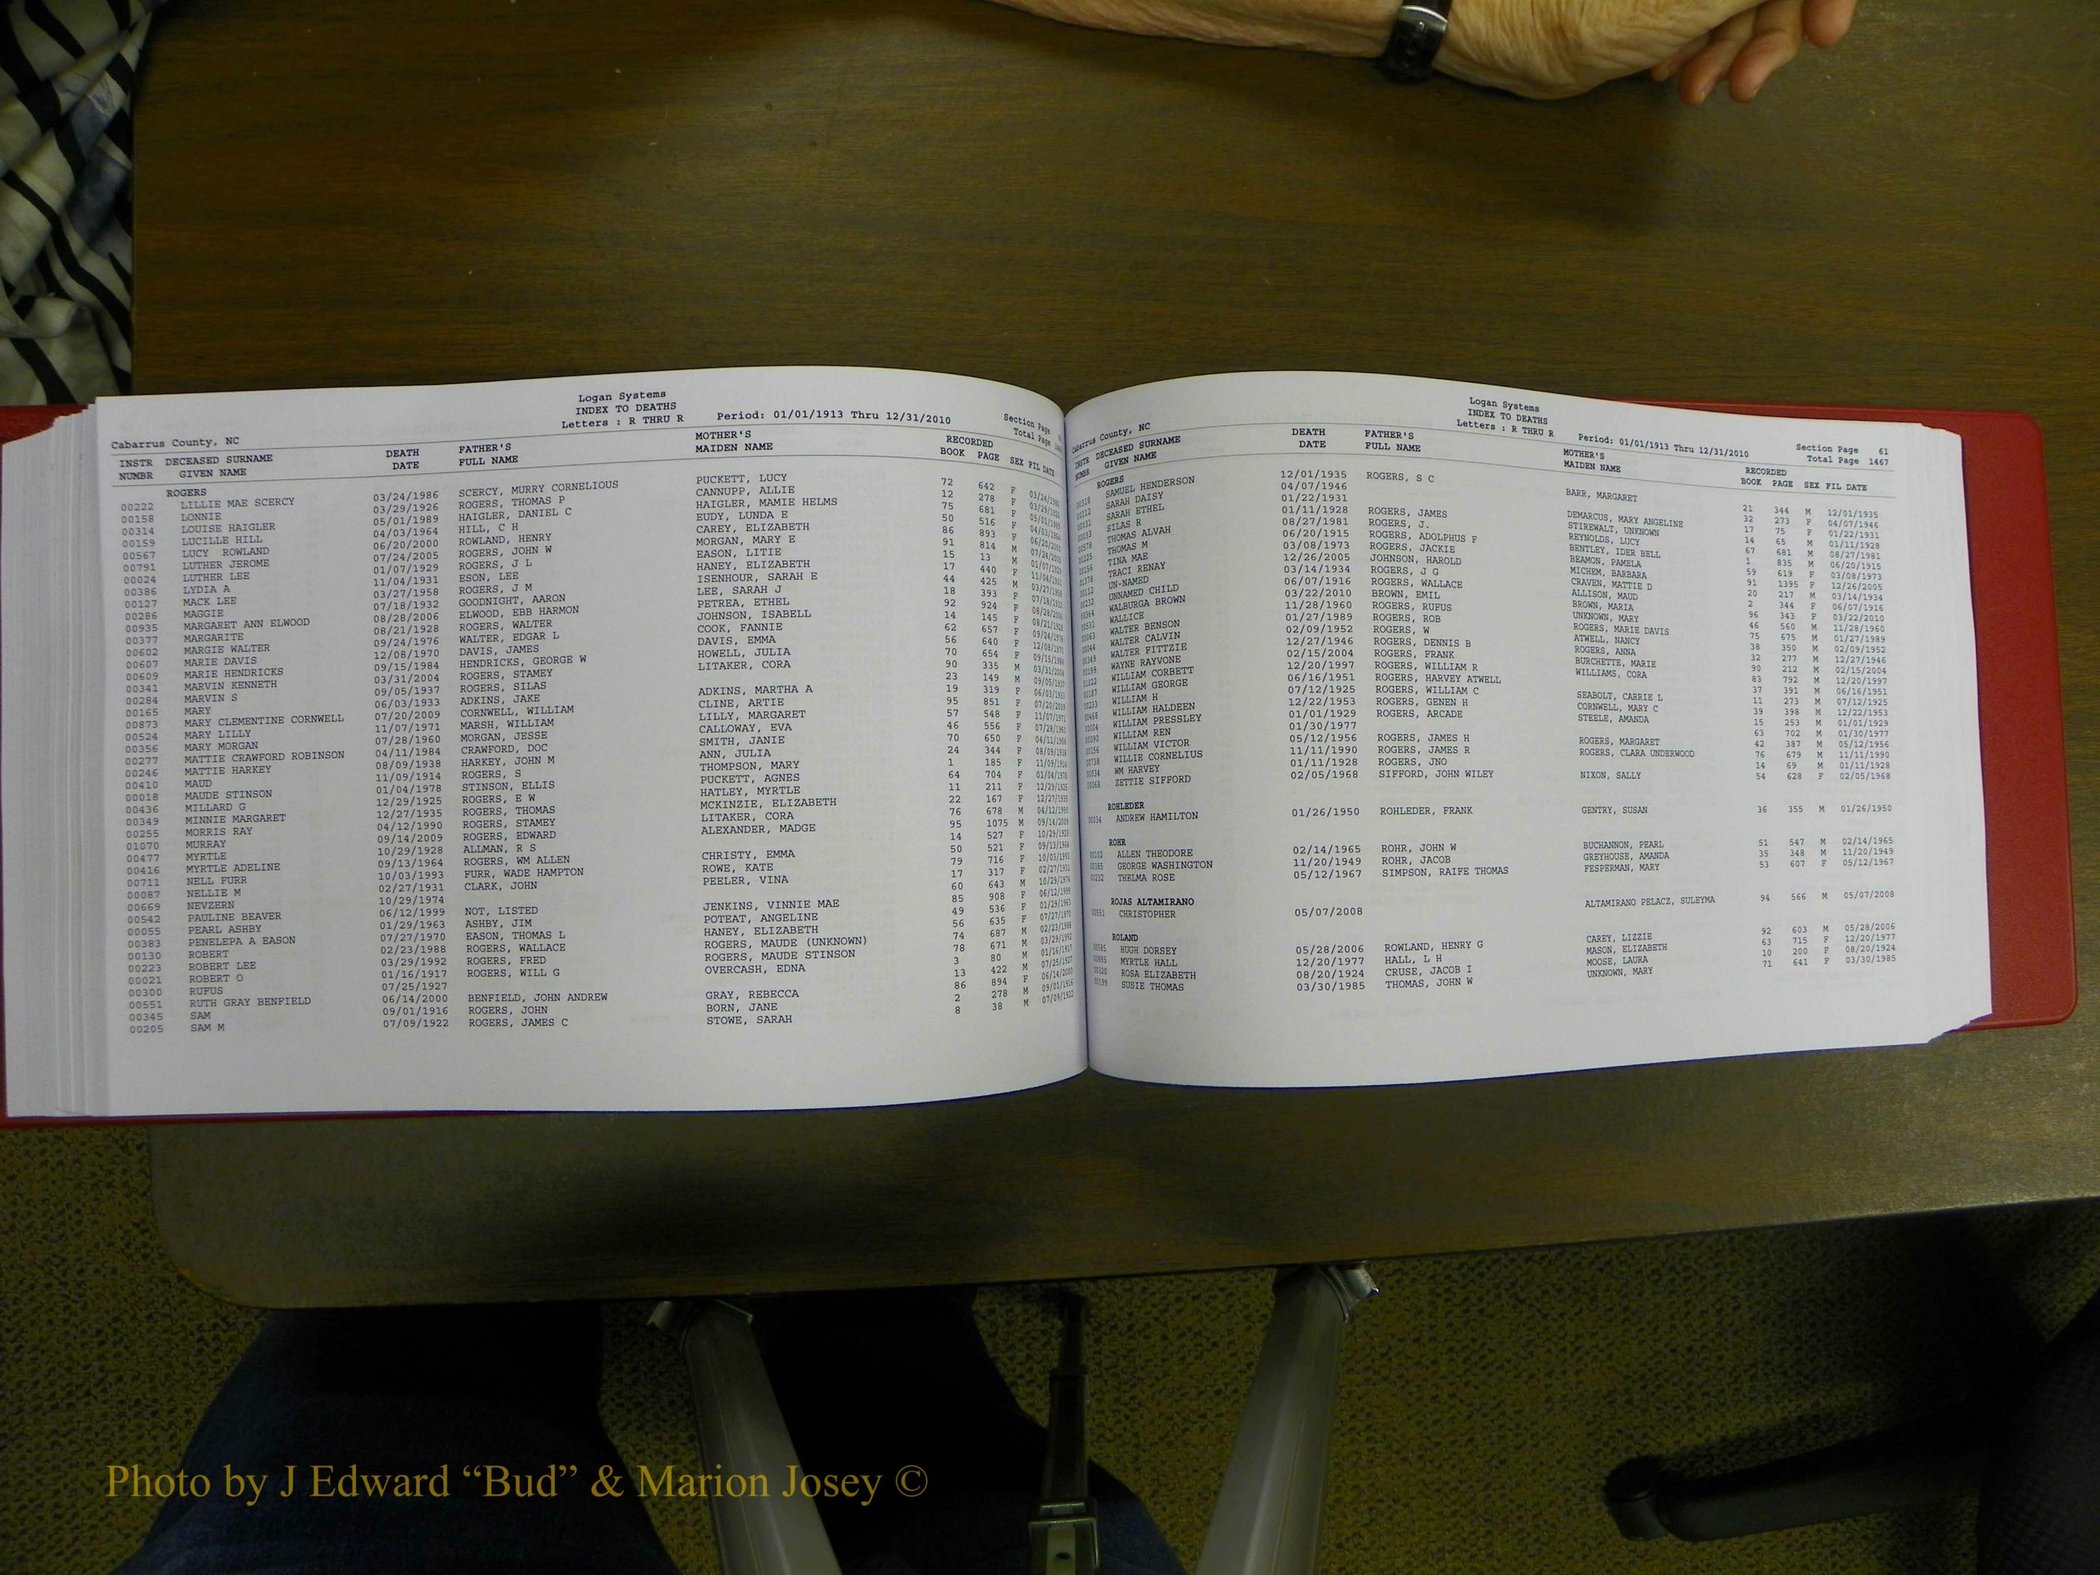 Logan Systems
INDEX TO DEATHS
Cabarrus County, NC Letters : R THRU R Period: 01/01/1913 Thru 12/31/2010 Section Page
Total Page 1466
INSTR DECEASED SURNAME DEATH FATHER'S MOTHER'S RECORDED
NUMBR GIVEN NAME DATE FULL NAME MAIDEN NAME BOOK PAGE SEX FIL DATE
ROGERS
00222 LILLIE MAE SCERCY 03/24/1986 SCERCY, MURRY CORNELIOUS PUCKETT, LUCY 72 642 F 03/24/1986
00158 LONNIE 03/29/1926 ROGERS, THOMAS P CANNUPP, ALLIE 12 278 F 03/29/1926
00314 LOUISE HAIGLER 05/01/1989 HAIGLER, DANIEL C HAIGLER, MAMIE HELMS 75 681 F 05/01/1989
00159 LUCILLE HILL 04/03/1964 HILL, C H EUDY, LUNDA E 50 516 F 04/03/1964
00567 LUCY ROWLAND 06/20/2000 ROWLAND, HENRY CAREY, ELIZABETH 86 893 F 06/20/2000
00791 LUTHER JEROME 07/24/2005 ROGERS, JOHN W MORGAN, MARY E 91 814 M 07/24/2005
00024 LUTHER LEE 01/07/1929 ROGERS, J L EASON, LITIE 15 13 M 01/07/1929
00386 LYDIA A 11/04/1931 ESON, LEE HANEY, ELIZABETH 17 440 F 11/04/1931
00127 MACK LEE 03/27/1958 ROGERS, J M ISENHOUR, SARAH E 44 425 M 03/27/1958
00286 MAGGIE 07/18/1932 GOODNIGHT, AARON LEE, SARAH J 18 393 F 07/18/1932
00935 MARGARET ANN ELWOOD 08/28/2006 ELWOOD, EBB HARMON PETREA, ETHEL 92 924 F 08/28/2006
00377 MARGARITE 08/21/1928 ROGERS, WALTER JOHNSON, ISABELL 14 145 F 08/21/1928
00602 MARGIE WALTER 09/24/1976 WALTER, EDGAR L COOK, FANNIE 62 657 F 09/24/1976
00607 MARIE DAVIS 12/08/1970 DAVIS, JAMES DAVIS, EMMA 56 640 F 12/08/1970
00609 MARIE HENDRICKS 09/15/1984 HENDRICKS, GEORGE W HOWELL, JULIA 70 654 F 09/15/1984
00341 MARVIN KENNETH 03/31/2004 ROGERS, STAMEY LITAKER, CORA 90 335 M 03/31/2004
00284 MARVIN S 09/05/1937 ROGERS, SILAS 23 149 M 09/05/1937
00165 MARY 06/03/1933 ADKINS, JAKE ADKINS, MARTHA A 19 319 F 06/03/1933
00873 MARY CLEMENTINE CORNWELL 07/20/2009 CORNWELL, WILLIAM CLINE, ARTIE 95 851 F 07/20/2009
00524 MARY LILLY 11/07/1971 MARSH, WILLIAM LILLY, MARGARET 57 548 F 11/07/1971
00356 MARY MORGAN 07/28/1960 MORGAN, JESSE CALLOWAY, EVA 46 556 F 07/28/1960
00277 MATTIE CRAWFORD ROBINSON 04/11/1984 CRAWFORD, DOC SMITH, JANIE 70 650 F 04/11/1984
00246 MATTIE HARKEY 08/09/1938 HARKEY, JOHN M ANN, JULIA 24 344 F 08/09/1938
00410 MAUD 11/09/1914 ROGERS, S THOMPSON, MARY 1 185 F 11/09/1914
00018 MAUDE STINSON 01/04/1978 STINSON, ELLIS PUCKETT, AGNES 64 704 F 01/04/1978
00436 MILLARD G 12/29/1925 ROGERS, E W HATLEY, MYRTLE 11 211 F 12/29/1925
00349 MINNIE MARGARET 12/27/1935 ROGERS, THOMAS MCKINZIE, ELIZABETH 22 167 F 12/27/1935
00255 MORRIS RAY 04/12/1990 ROGERS, STAMEY LITAKER, CORA 76 678 M 04/12/1990
01070 MURRAY 09/14/2009 ROGERS, EDWARD ALEXANDER, MADGE 95 1075 M 09/14/2009
00477 MYRTLE 10/29/1928 ALLMAN, R S 14 527 F 10/29/1928
00416 MYRTLE ADELINE 09/13/1964 ROGERS, WM ALLEN CHRISTY, EMMA 50 521 F 09/13/1964
00711 NELL FURR 10/03/1993 FURR, WADE HAMPTON ROWE, KATE 79 716 F 10/03/1993
00087 NELLIE M 02/27/1931 CLARK, JOHN PEELER, VINA 17 317 F 02/27/1931
00669 NEVZERN 10/29/1974 60 643 M 10/29/1974
00542 PAULINE BEAVER 06/12/1999 NOT, LISTED JENKINS, VINNIE MAE 85 908 F 06/12/1999
00055 PEARL ASHBY 01/29/1963 ASHBY, JIM POTEAT, ANGELINE 49 536 F 01/29/1963
00383 PENELEPA A EASON 07/27/1970 EASON, THOMAS L HANEY, ELIZABETH 56 635 F 07/27/1970
00130 ROBERT 02/23/1988 ROGERS, WALLACE ROGERS, MAUDE (UNKNOWN) 74 687 M 02/23/1988
00223 ROBERT LEE 03/29/1992 ROGERS, FRED ROGERS, MAUDE STINSON 78 671 M 03/29/1992
00021 ROBERT O 01/16/1917 ROGERS, WILL G OVERCASH, EDNA 3 80 M 01/16/1917
00300 RUFUS 07/25/1927 13 422 M 07/25/1927
00551 RUTH GRAY BENFIELD 06/14/2000 BENFIELD, JOHN ANDREW GRAY, REBECCA 86 894 F 06/14/2000
00345 SAM 09/01/1916 ROGERS, JOHN BORN, JANE 2 278 M 09/01/1916
00205 SAM M 07/09/1922 ROGERS, JAMES C STOWE, SARAH 8 38 M 07/09/1922
Logan Systems
INDEX TO DEATHS
Cabarrus County, NC Letters : R THRU R Period: 01/01/1913 Thru 12/31/2010 Section Page 61
Total Page 1467
INSTR DECEASED SURNAME DEATH FATHER'S MOTHER'S RECORDED
NUMBR GIVEN NAME DATE FULL NAME MAIDEN NAME BOOK PAGE SEX FIL DATE
ROGERS
SAMUEL HENDERSON 12/01/1935 ROGERS, S C BARR, MARGARET 21 344 M 12/01/1935
SARAH DAISY 04/07/1946 32 273 F 04/07/1946
SARAH ETHEL 01/22/1931 DEMARCUS, MARY ANGELINE 17 75 F 01/22/1931
SILAS R 01/11/1928 ROGERS, JAMES STIREWALT, UNKNOWN 14 65 M 01/11/1928
THOMAS ALVAH 08/27/1981 ROGERS, J. REYNOLDS, LUCY 67 681 M 08/27/1981
THOMAS M 06/20/1915 ROGERS, ADOLPHUS F BENTLEY, IDER BELL 1 835 M 06/20/1915
TINA MAE 03/08/1973 ROGERS, JACKIE BEAMON, PAMELA 59 619 F 03/08/1973
TRACI RENAY 12/26/2005 JOHNSON, HAROLD MICHEM, BARBARA 91 1395 F 12/26/2005
UN-NAMED 03/14/1934 ROGERS, J G CRAVEN, MATTIE D 20 217 M 03/14/1934
UNNAMED CHILD 06/07/1916 ROGERS, WALLACE ALLISON, MAUD 2 344 F 06/07/1916
WALBURGA BROWN 03/22/2010 BROWN, EMIL BROWN, MARIA 96 343 F 03/22/2010
WALLICE 11/28/1960 ROGERS, RUFUS UNKNOWN, MARY 46 560 M 11/28/1960
WALTER BENSON 01/27/1989 ROGERS, ROB ROGERS, MARIE DAVIS 75 675 M 01/27/1989
WALTER CALVIN 02/09/1952 ROGERS, W ATWELL, NANCY 38 350 M 02/09/1952
WALTER FITTZIE 12/27/1946 ROGERS, DENNIS B ROGERS, ANNA 32 277 M 12/27/1946
WAYNE RAYVONE 02/15/2004 ROGERS, FRANK BURCHETTE, MARIE 90 212 M 02/15/2004
WILLIAM CORBETT 12/20/1997 ROGERS, WILLIAM R WILLIAMS, CORA 83 792 M 12/20/1997
WILLIAM GEORGE 06/16/1951 ROGERS, HARVEY ATWELL 37 391 M 06/16/1951
WILLIAM H 07/12/1925 ROGERS, WILLIAM C SEABOLT, CARRIE L 11 273 M 07/12/1925
WILLIAM HALDEEN 12/22/1953 ROGERS, GENEN H CORNWELL, MARY C 39 398 M 12/22/1953
WILLIAM PRESSLEY 01/01/1929 ROGERS, ARCADE STEELE, AMANDA 15 253 M 01/01/1929
WILLIAM REN 01/30/1977 63 702 M 01/30/1977
WILLIAM VICTOR 05/12/1956 ROGERS, JAMES H ROGERS, MARGARET 42 387 M 05/12/1956
WILLIE CORNELIUS 11/11/1990 ROGERS, JAMES R ROGERS, CLARA UNDERWOOD 76 679 M 11/11/1990
WM HARVEY 01/11/1928 ROGERS, JNO 14 69 M 01/11/1928
ZETTIE SIFFORD 02/05/1968 SIFFORD, JOHN WILEY NIXON, SALLY 54 628 F 02/05/1968
ROHLEDER
00034 ANDREW HAMILTON 01/26/1950 ROHLEDER, FRANK GENTRY, SUSAN 36 355 M 01/26/1950
ROHR
00102 ALLEN THEODORE 02/14/1965 ROHR, JOHN W BUCHANNON, PEARL 51 547 M 02/14/1965
00385 GEORGE WASHINGTON 11/20/1949 ROHR, JACOB GREYHOUSE, AMANDA 35 348 M 11/20/1949
00232 THELMA ROSE 05/12/1967 SIMPSON, RAIFE THOMAS FESPERMAN, MARY 53 607 F 05/12/1967
ROJAS ALTAMIRANO
00551 CHRISTOPHER 05/07/2008 ALTAMIRANO PELACZ, SULEYMA 94 566 M 05/07/2008
ROLAND
00585 HUGH DORSEY 05/28/2006 ROWLAND, HENRY G CAREY, LIZZIE 92 603 M 05/28/2006
00695 MYRTLE HALL 12/20/1977 HALL, L H MASON, ELIZABETH 63 715 F 12/20/1977
00320 ROSA ELIZABETH 08/20/1924 CRUSE, JACOB I MOOSE, LAURA 10 200 F 08/20/1924
00199 SUSIE THOMAS 03/30/1985 THOMAS, JOHN W UNKNOWN, MARY 71 641 F 03/30/1985
Photo by J Edward “Bud” & Marion Josey ©